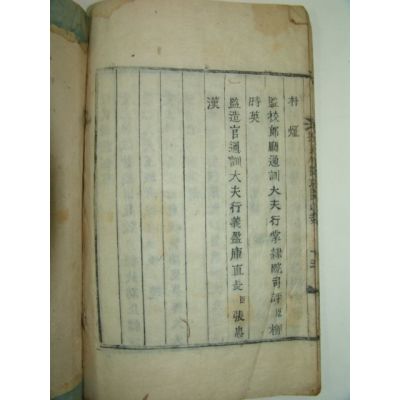 朴烶
監校郎廳通訓大夫行掌隷院司評臣柳
時英
監造官通訓大夫行義盈庫直長臣張忠
漢